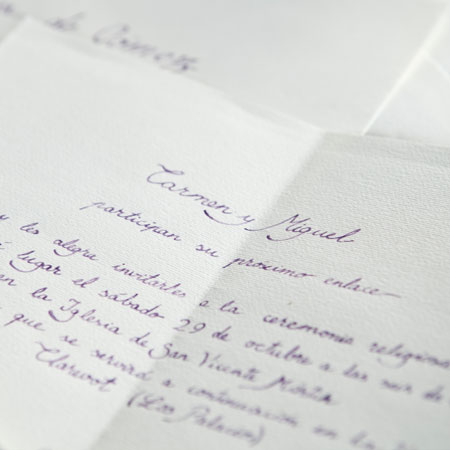 de
Carmen y Miguel
participan su próximo enlace
y les alegra invitarles a la ceremonia religiosa
lugar el sábado 29 de octubre a las seis de
en la Iglesia de San Vicente Mártir
que se servirá a continuación en la
(Los Palacios)